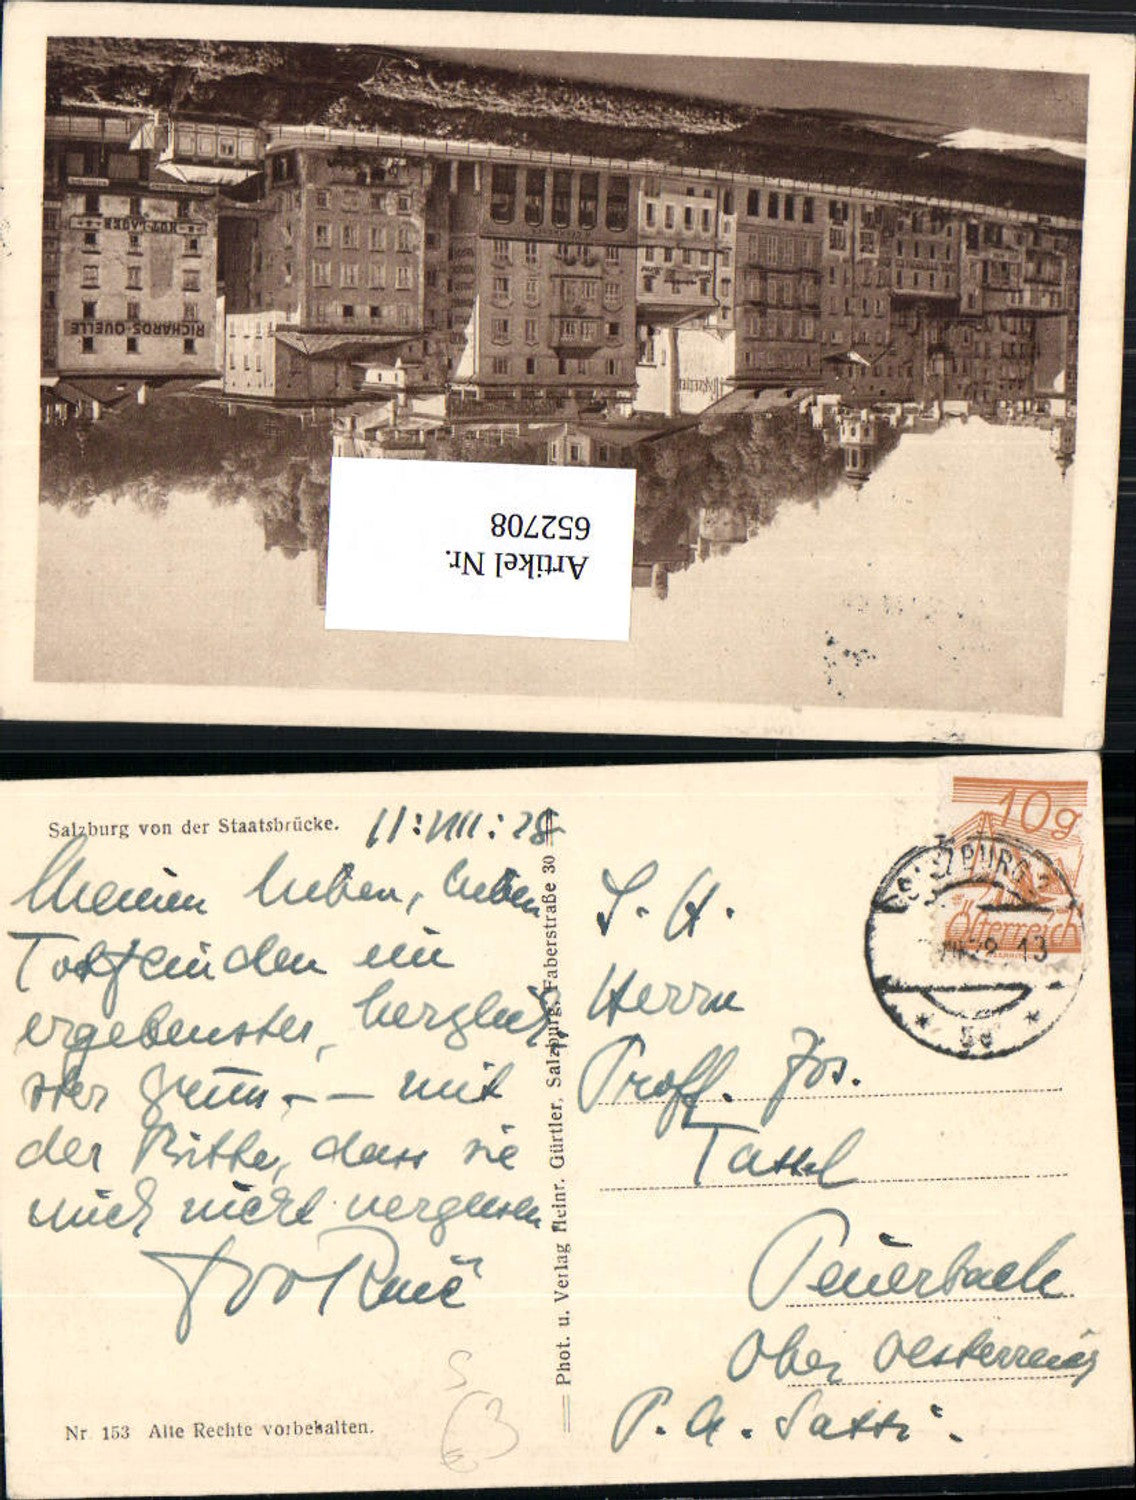 HUT-LAGER
RICHARDS-QUELLE
Artikel Nr.
652708
Salzburg von der Staatsbrücke.
11:VIII:28
Meinen lieben, lieben
ein
ergebenster,
mit
der Bitte, dass sie
mich nicht vergessen
Nr. 153 Alle Rechte vorbehalten.
Phot. u. Verlag Heinr. Gürtler, Salzburg, Faberstraße 30
10g
Österreich
SALZBURG 2
5d
S. H.
Herrn
Proff. Jos.
Peuerbach
Ober Oesterreich